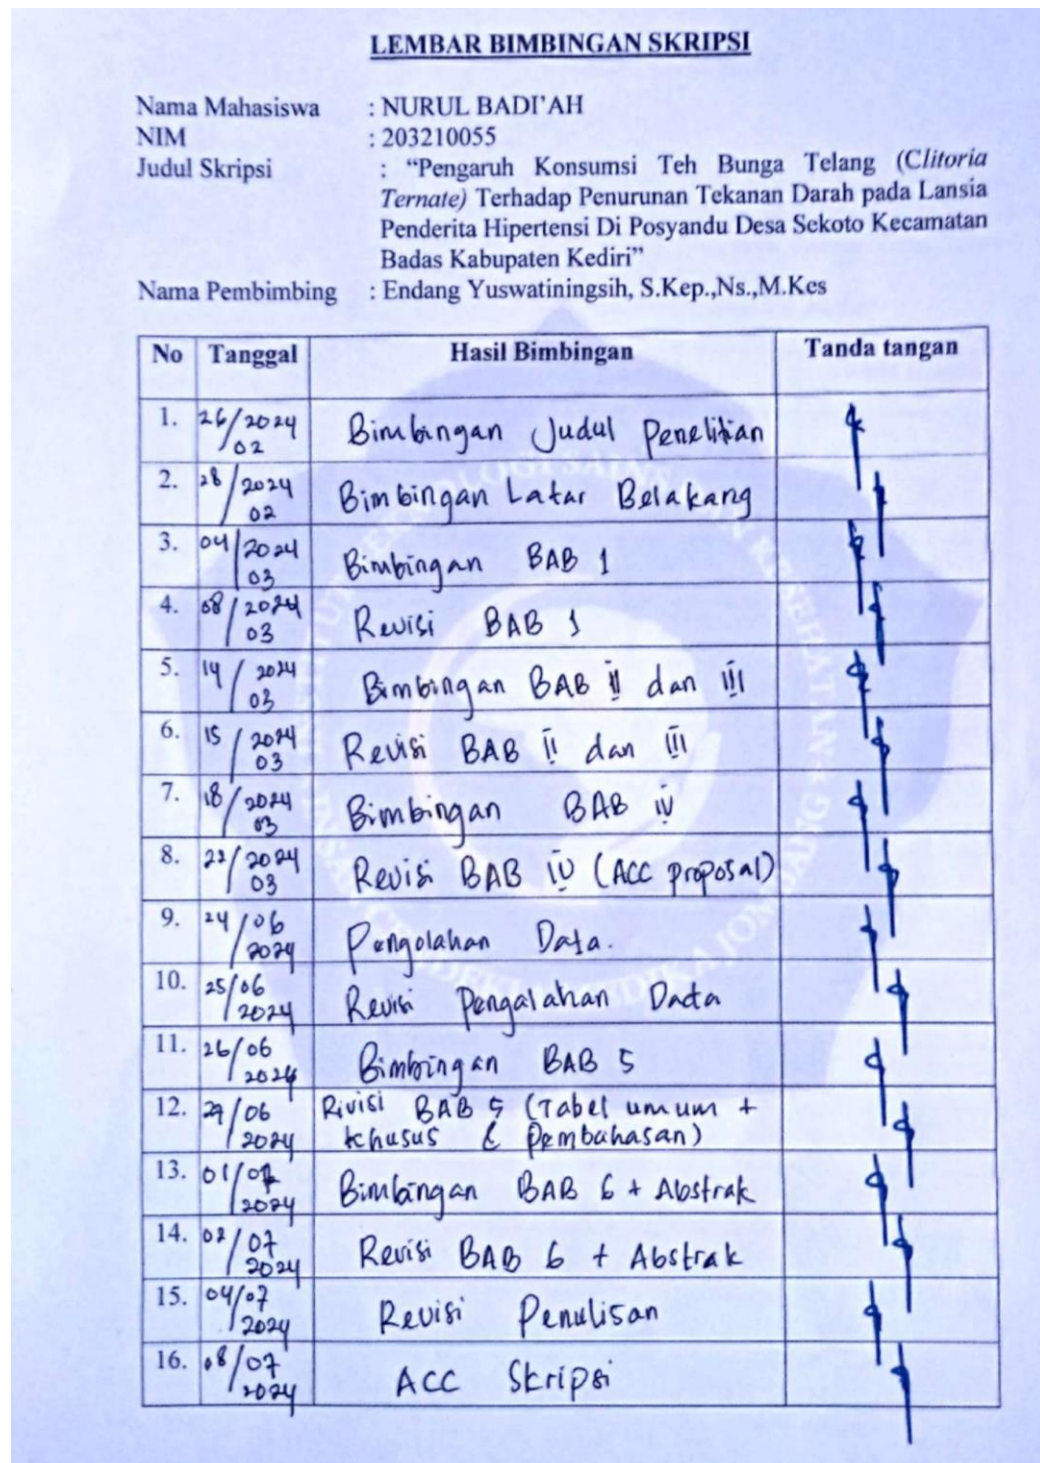 LEMBAR BIMBINGAN SKRIPSI
Nama Mahasiswa : NURUL BADI'AH
NIM : 203210055
Judul Skripsi : "Pengaruh Konsumsi Teh Bunga Telang (Clitoria
Ternate) Terhadap Penurunan Tekanan Darah pada Lansia
Penderita Hipertensi Di Posyandu Desa Sekoto Kecamatan
Badas Kabupaten Kediri"
Nama Pembimbing : Endang Yuswatiningsih, S.Kep.,Ns.,M.Kes
No Tanggal Hasil Bimbingan Tanda tangan
1. 26/2024
02 Bimbingan Judul Penelitian
2. 28/2024
02 Bimbingan Latar Belakang
3. 04/2024
03 Bimbingan BAB 1
4. 08/2024
03 Revisi BAB 1
5. 14/2024
03 Bimbingan BAB II dan III
6. 15/2024
03 Revisi BAB II dan III
7. 18/2024
03 Bimbingan BAB IV
8. 22/2024
03 Revisi BAB IV (ACC proposal)
9. 24/06
2024 Pengolahan Data.
10. 25/06
2024 Revisi Pengalahan Data
11. 26/06
2024 Bimbingan BAB 5
12. 29/06 Rivisi BAB 5 (Tabel umum +
2024 khusus & Pembahasan)
13. 01/07
2024 Bimbingan BAB 6 + Abstrak
14. 02/07
2024 Revisi BAB 6 + Abstrak
15. 04/07
2024 Revisi Penulisan
16. 08/07
2024 ACC Skripsi